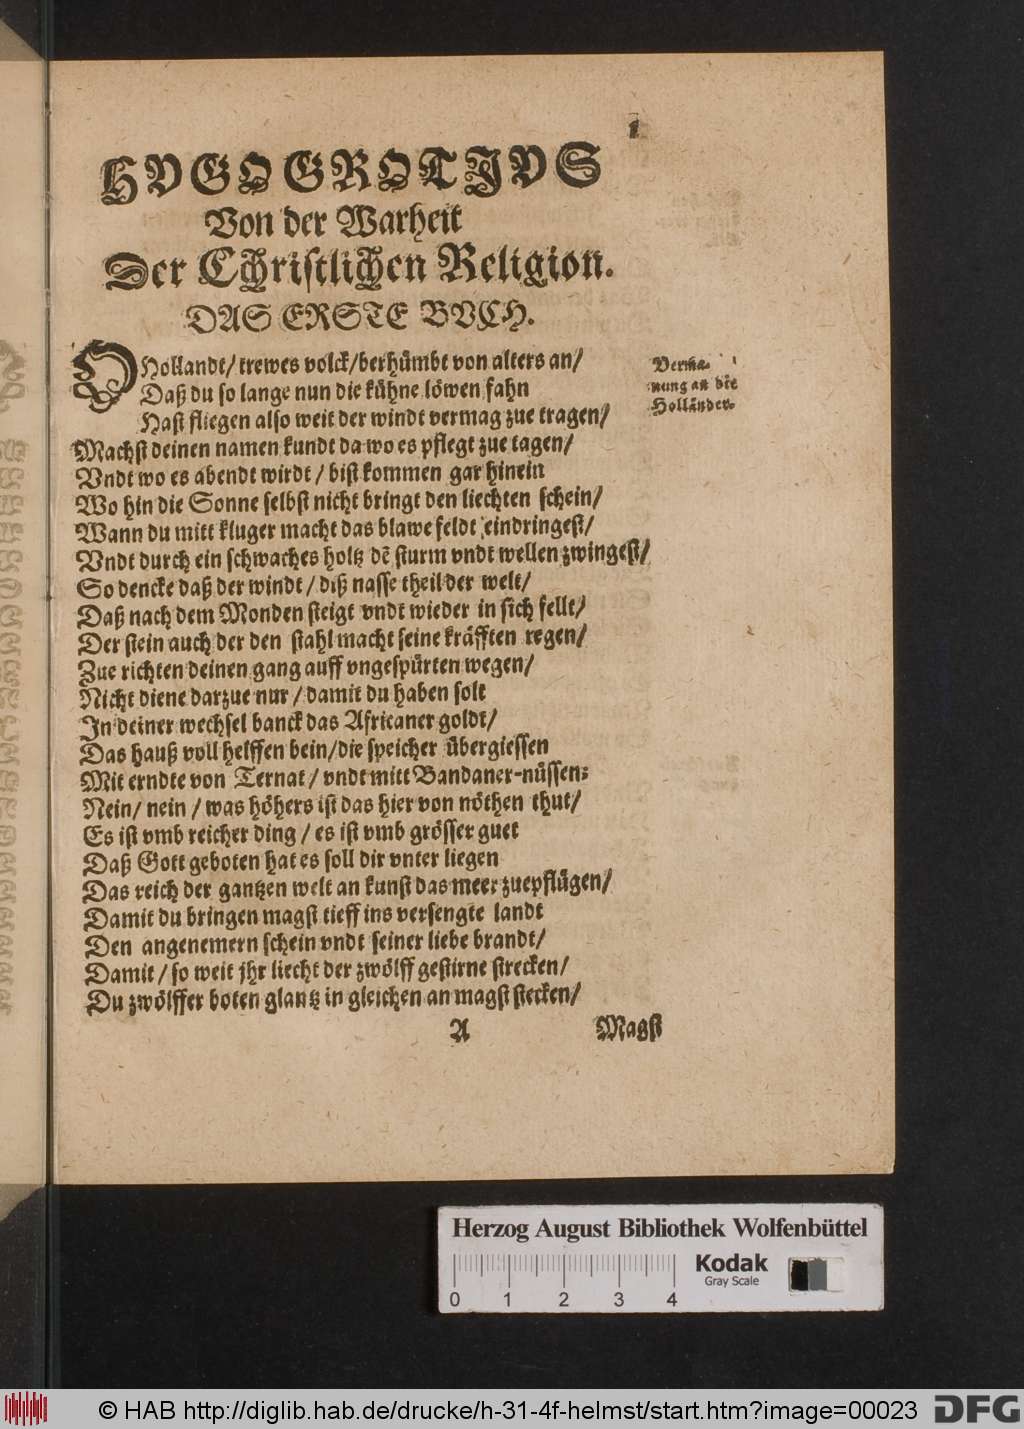 1
HVGO GROTJVS
Von der Warheit
Der Christlichen Religion.
DAS ERSTE BVCH.
O Hollandt/ trewes volck/berhümbt von alters an/
Daß du so lange nun die kühne löwen fahn
Hast fliegen also weit der windt vermag zue tragen/
Machst deinen namen kundt da wo es pflegt zue tagen/
Vndt wo es abendt wirdt / bist kommen gar hinein
Wo hin die Sonne selbst nicht bringt den liechten schein/
Wann du mitt kluger macht das blawe feldt eindringest/
Vndt durch ein schwaches holtz dē sturm vndt wellen zwingest/
So dencke daß der windt / diß nasse theil der welt/
Daß nach dem Monden steigt vndt wieder in sich fellt/
Der stein auch der den stahl macht seine kräfften regen/
Zue richten deinen gang auff vngespürten wegen/
Nicht diene darzue nur / damit du haben solt
Jn deiner wechsel banck das Africaner goldt/
Das hauß voll helffen bein/die speicher übergiessen
Mit erndte von Ternat / vndt mitt Bandaner-nüssen:
Nein/ nein / was höhers ist das hier von nöthen thut/
Es ist vmb reicher ding / es ist vmb grösser guet
Daß Gott geboten hat es soll dir vnter liegen
Das reich der gantzen welt an kunst das meer zuepflügen/
Damit du bringen magst tieff ins versengte landt
Den angenemern schein vndt seiner liebe brandt/
Damit / so weit jhr liecht der zwölff gestirne strecken/
Du zwölffer boten glantz in gleichen an magst stecken/
A Magst
Verma-
nung an die
Holländer.
Herzog August Bibliothek Wolfenbüttel
Kodak
Gray Scale
0 1 2 3 4
© HAB http://diglib.hab.de/drucke/h-31-4f-helmst/start.htm?image=00023
DFG